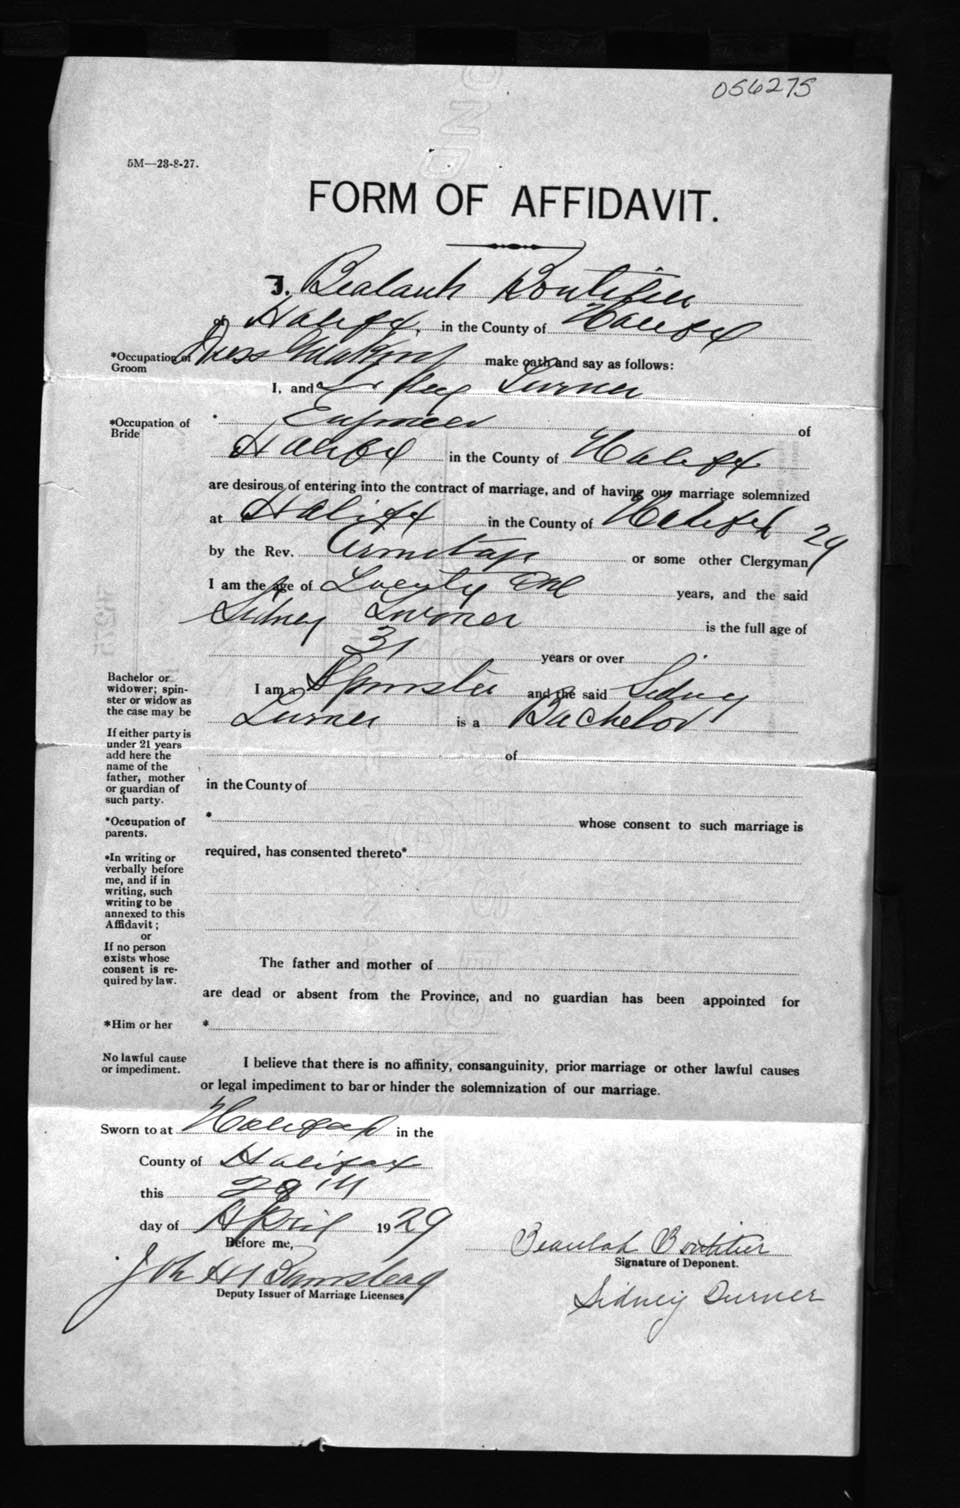 056275
5M—28-8-27.
FORM OF AFFIDAVIT.
I, Bealauh Boutilier
of Halifax, in the County of Halifax
*Occupation of Groom Dress Making make oath and say as follows:
I, and Sidney Turner
*Occupation of Bride * Engineer of
Halifax in the County of Halifax
are desirous of entering into the contract of marriage, and of having our marriage solemnized
at Halifax in the County of Halifax 29
by the Rev. Armitage or some other Clergyman
I am the age of Twenty One years, and the said
Sidney Turner is the full age of
31 years or over
I am a Spinster and the said Sidney
Turner is a Bachelor
Bachelor or
widower; spin-
ster or widow as
the case may be
If either party is
under 21 years
add here the
name of the
father, mother
or guardian of
such party.
of
in the County of
*Occupation of
parents.
* whose consent to such marriage is
required, has consented thereto*
*In writing or
verbally before
me, and if in
writing, such
writing to be
annexed to this
Affidavit;
or
If no person
exists whose
consent is re-
quired by law.
The father and mother of
are dead or absent from the Province, and no guardian has been appointed for
*Him or her *
No lawful cause
or impediment.
I believe that there is no affinity, consanguinity, prior marriage or other lawful causes
or legal impediment to bar or hinder the solemnization of our marriage.
Sworn to at Halifax in the
County of Halifax
this 28th
day of April 1929
Before me,
Deputy Issuer of Marriage Licenses
Beaulah Boutilier
Signature of Deponent.
Sidney Turner